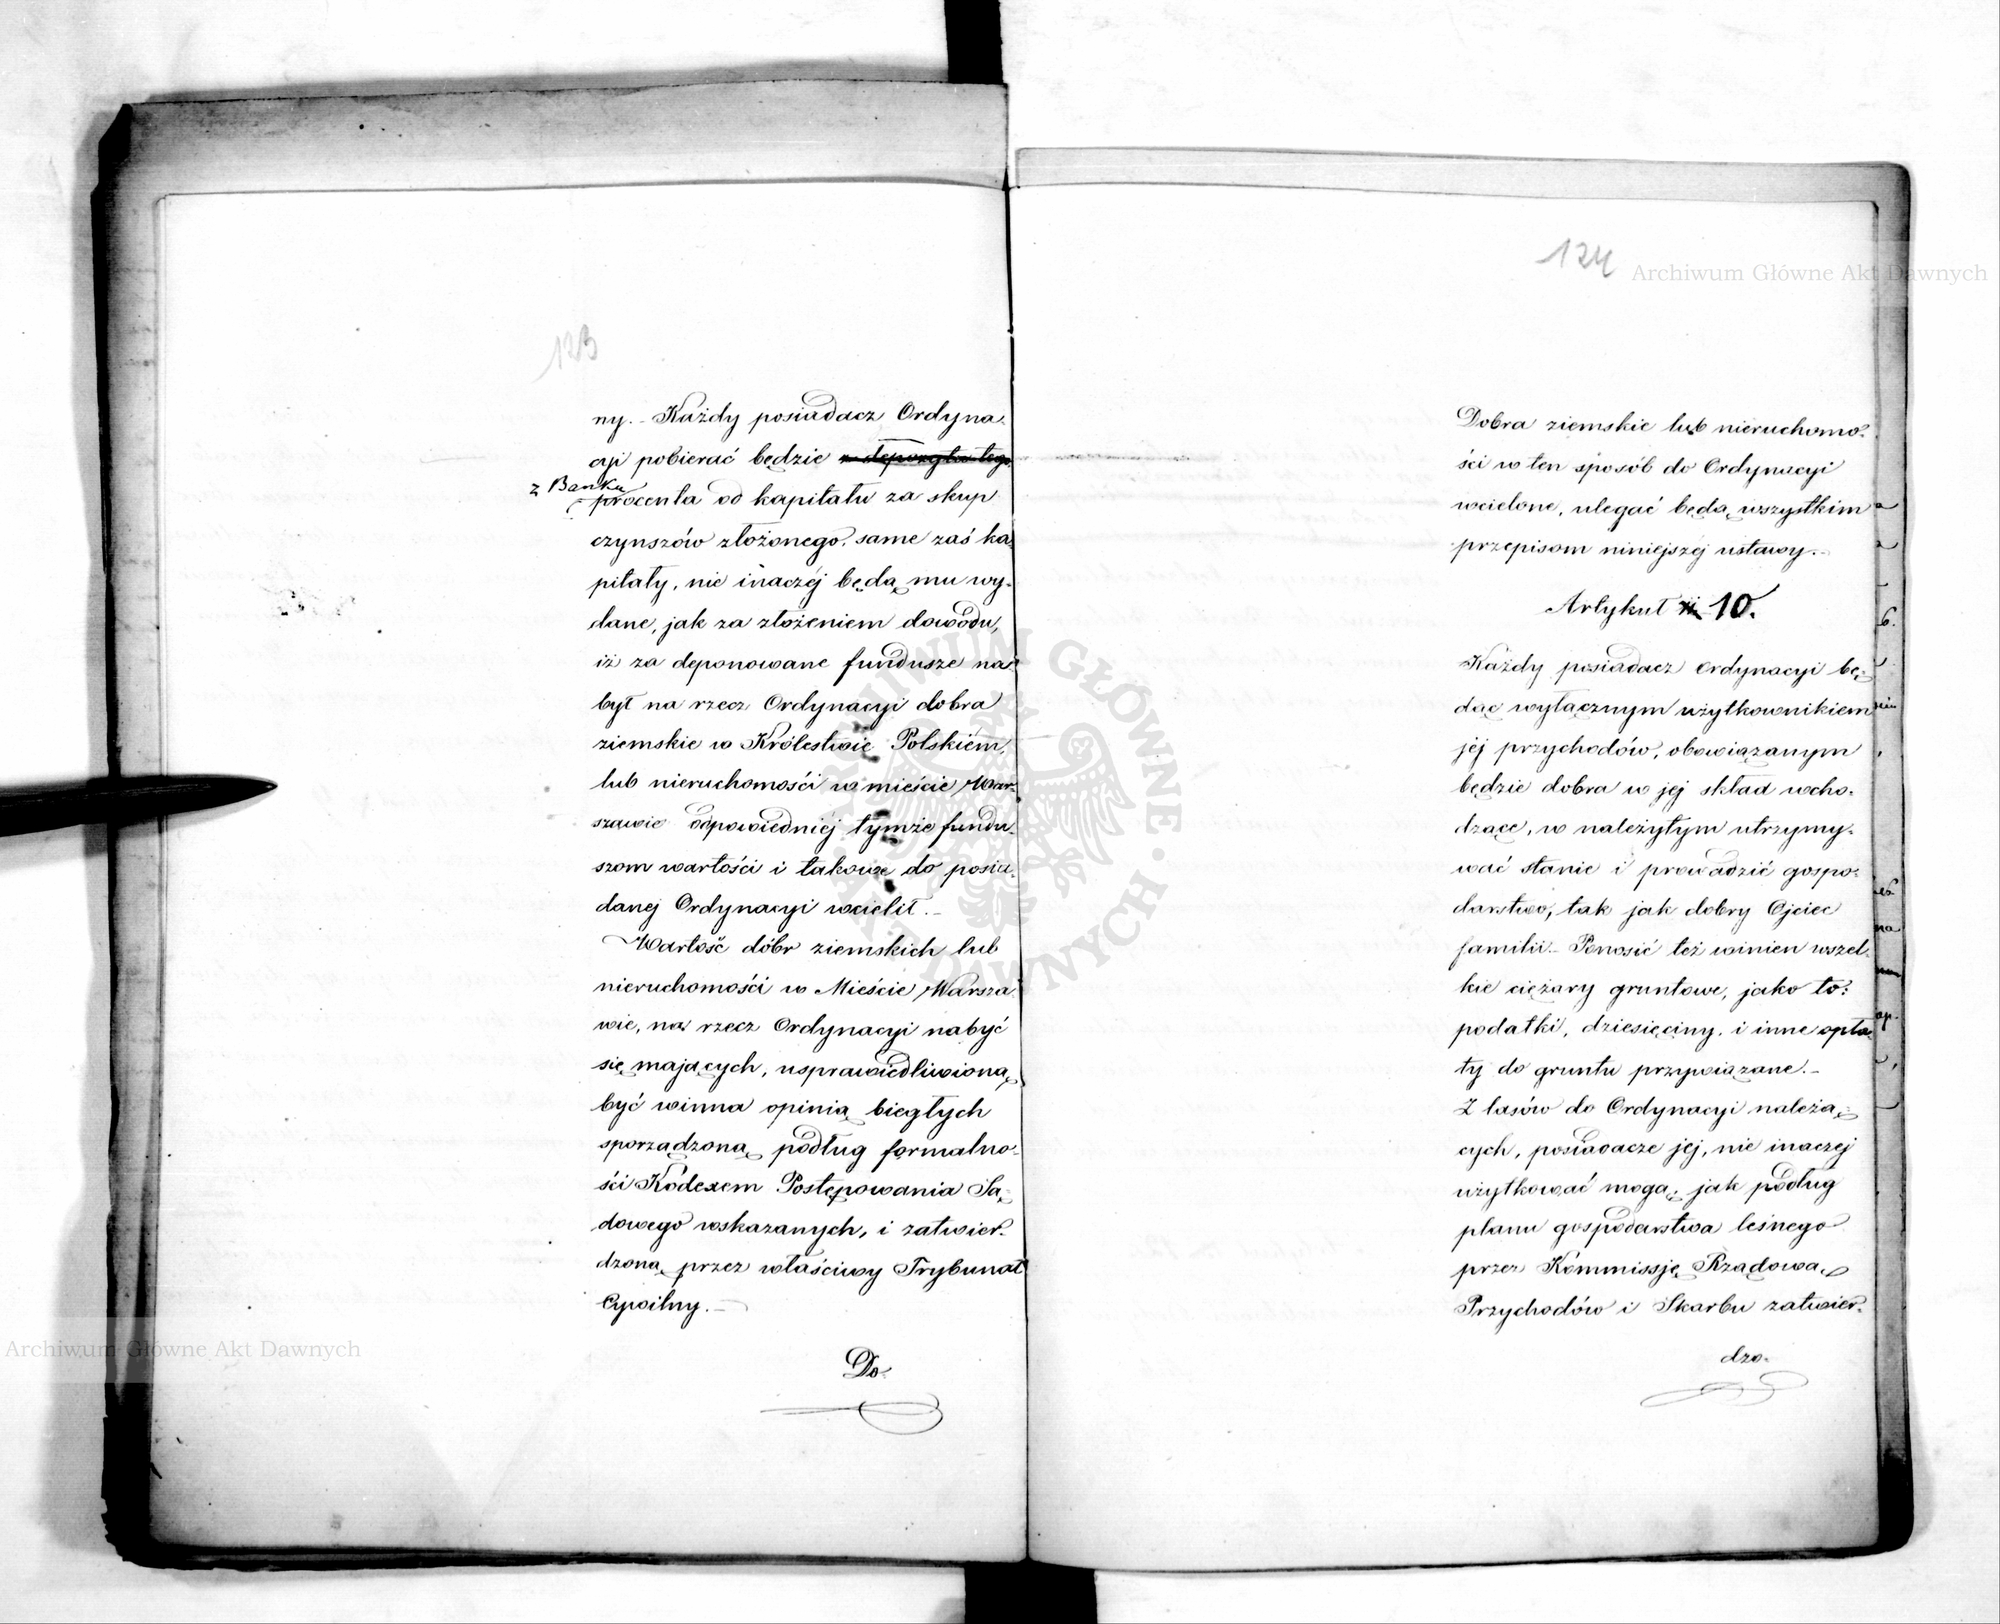 123
ny. - Każdy posiadacz Ordyna-
cyi pobierać będzie z depozytu tego
z Banku
procenta od kapitału za skup
czynszów złożonego, same zaś ka-
pitały, nie inaczéj będą mu wy-
dane, jak za złożeniem dowodu,
iż za deponowane fundusze na-
był na rzecz Ordynacyi dobra
ziemskie w Królestwie Polskiém,
lub nieruchomości w mieście War-
szawie odpowiedniéj tymże fundu-
szom wartości i takowe do posia-
danej Ordynacyi wcielił. -
Wartość dóbr ziemskich lub
nieruchomości w Mieście Warsza-
wie, na rzecz Ordynacyi nabyć
się mających, usprawiedliwioną
być winna opinią biegłych
sporządzoną podług formalno-
ści Kodexem Postępowania Są-
dowego wskazanych, i zatwier-
dzoną przez właściwy Trybunał
Cywilny. -
Do-
124
Dobra ziemskie lub nieruchomo-
ści w ten sposób do Ordynacyi
wcielone, ulegać będą wszystkim
przepisom niniejszéj ustawy. -
Artykuł 10.
Każdy posiadacz Ordynacyi bę-
dąc wyłącznym użytkownikiem
jéj przychodów, obowiązanym
będzie dobra w jéj skład wcho-
dzące, w należytym utrzymy-
wać stanie i prowadzić gospo-
darstwo, tak jak dobry Ojciec
familii. - Ponosić też winien wszel-
kie ciężary gruntowe, jako to:
podatki, dziesięciny, i inne opła-
ty do gruntu przywiązane. -
Z lasów do Ordynacyi należą-
cych, posiadacze jej, nie inaczej
użytkować mogą, jak podług
planu gospodarstwa leśnego
przez Kommissję Rządową
Przychodów i Skarbu zatwier-
dzo-
Archiwum Główne Akt Dawnych
Archiwum Główne Akt Dawnych
ARCHIWUM GŁÓWNE AKT DAWNYCH